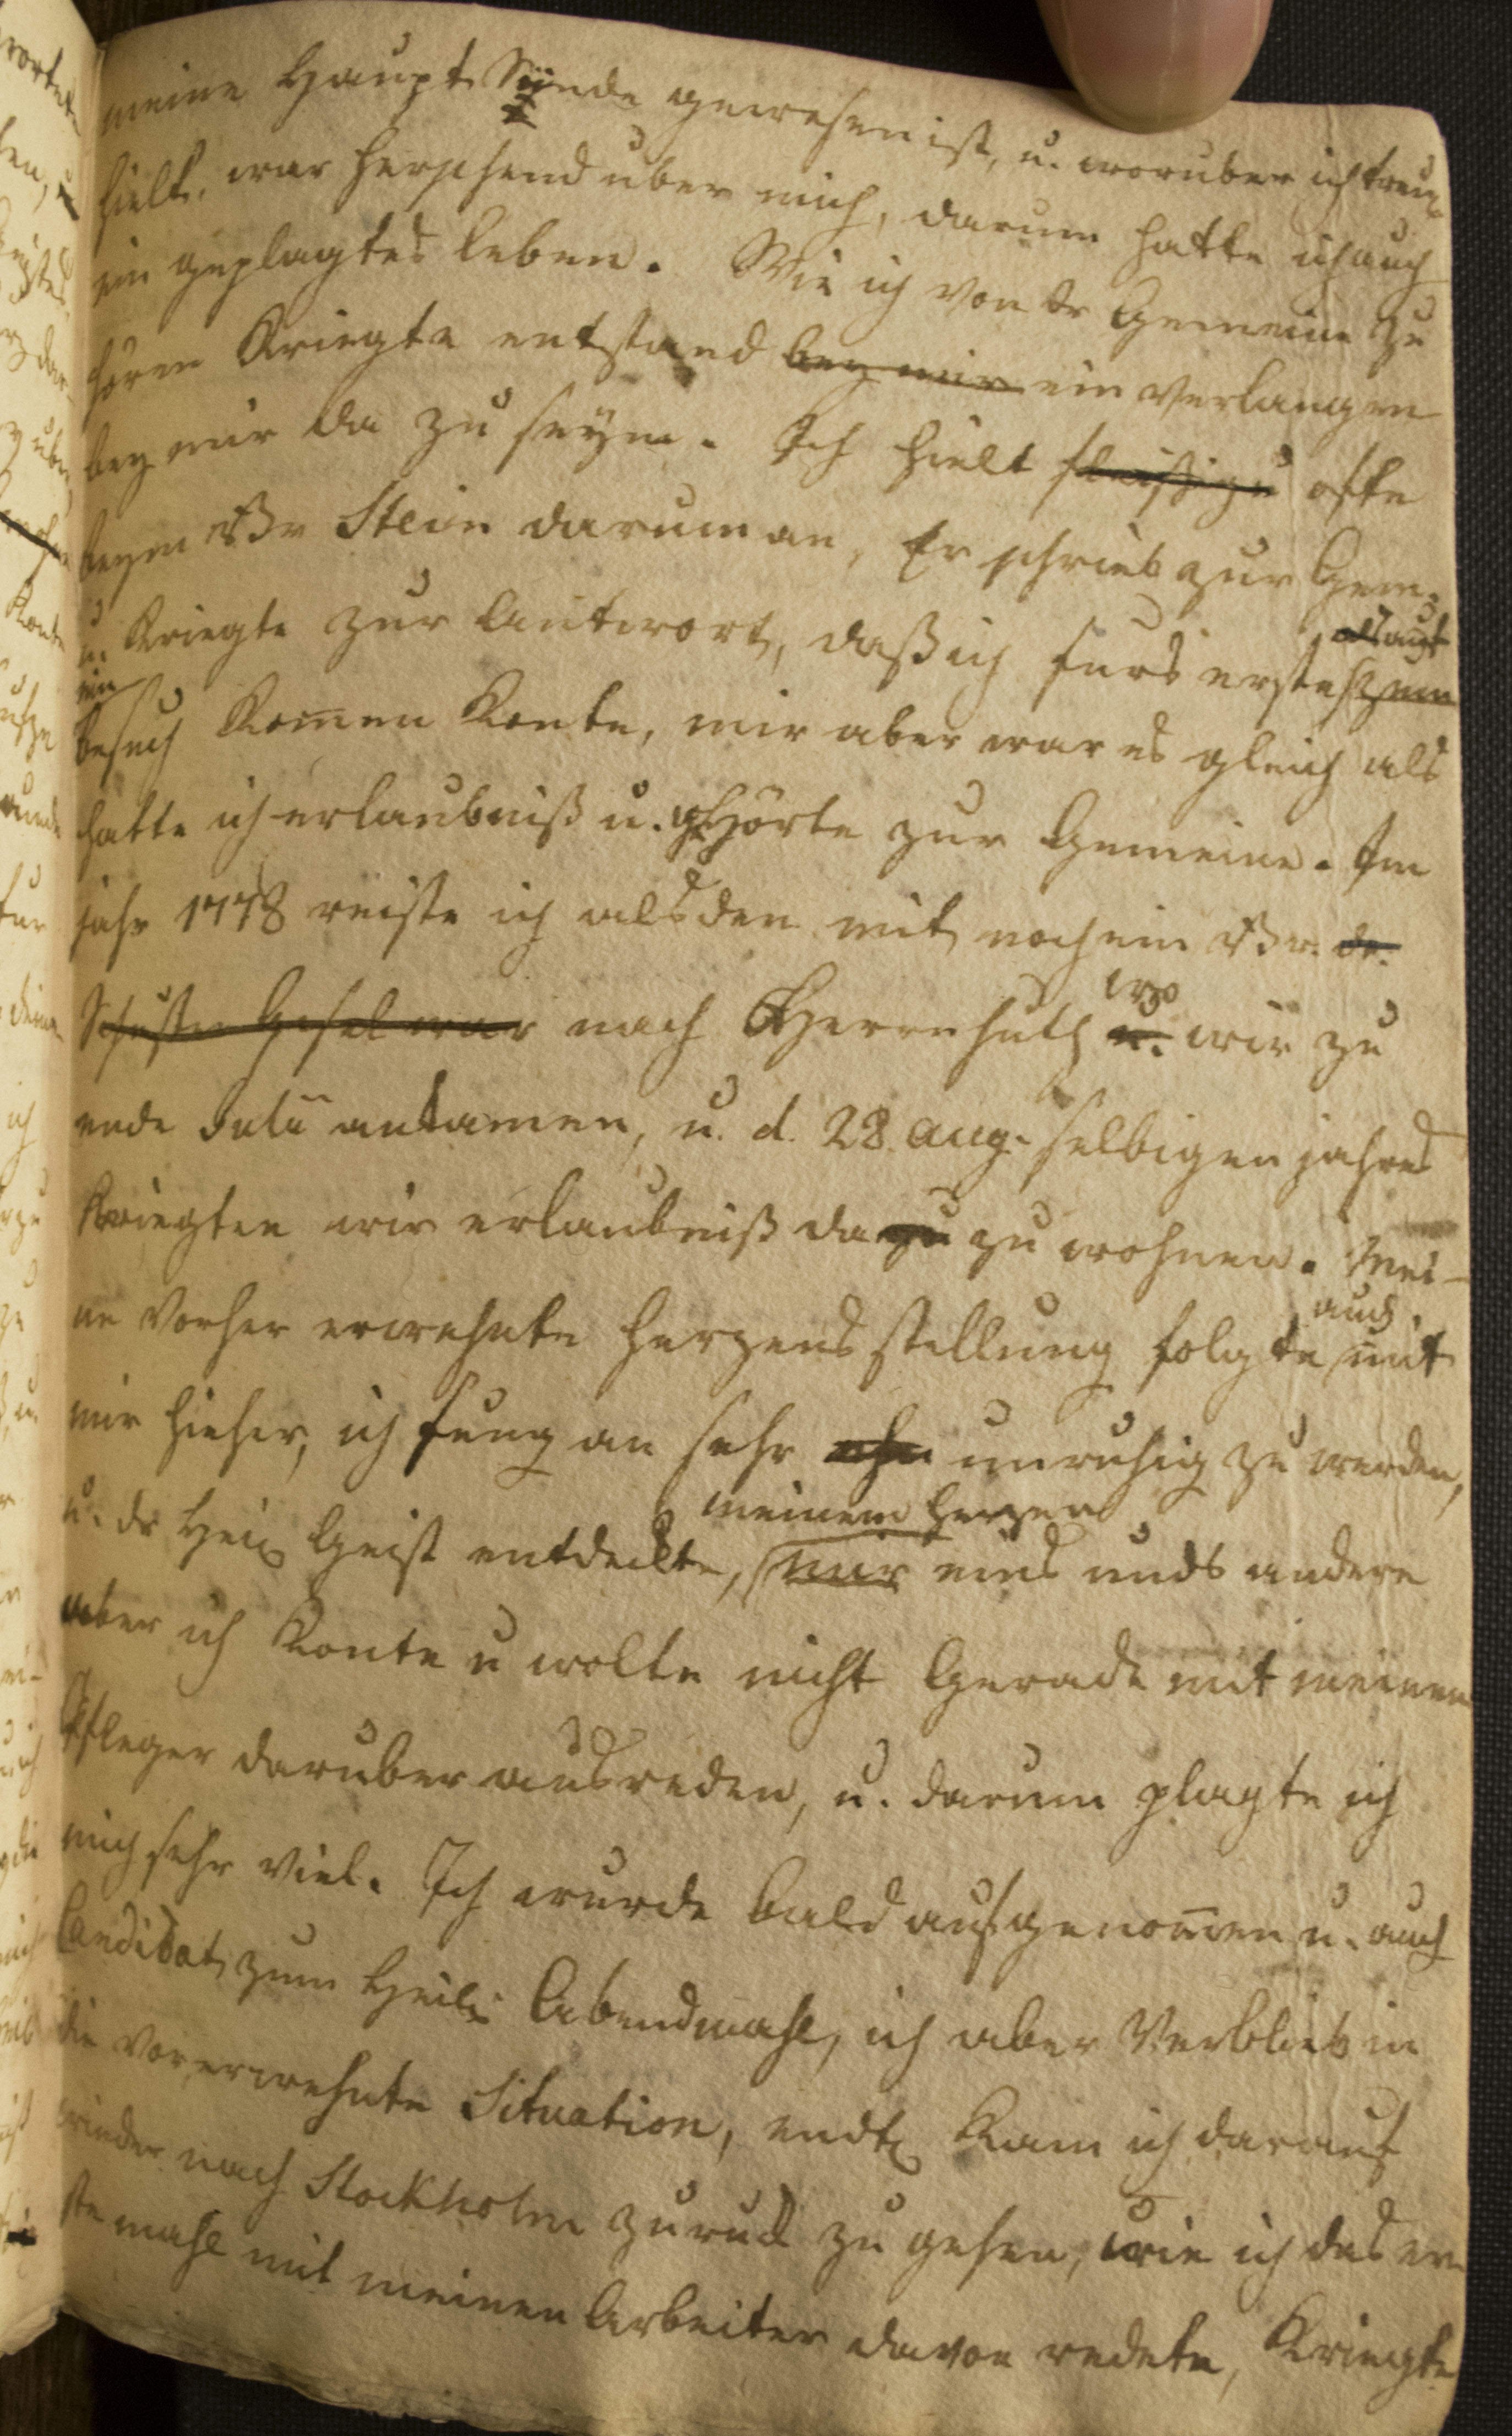 meine Haupt Sünde gewesen ist, u. worüber ich treu
hielt. war herschend über mich, darum hatte ich auch
ein geplagtes leben. Wie ich von dr Gemeine zu
hören Kriegte entstand bey mir ein verlangen
bey mir da zu seyn. Ich hielt fleißiger ofte
beym Br Stein darum an, Er schrieb zur Gem:
als auf
u. Kriegte zur Antwort, daß ich fürs erste zum
ein
besuch Kom̄en Konte, mir aber war es gleich als
hatte ich erlaubniß u. gehörte zur Gemeine. Im
jahr 1778 reiste ich alsden mit noch ein Br. dr.
Schuster Gesel war nach Herrnhuth u. wir zu
wo
ende Julii ankamen, u. d. 28. Aug. selbigen jahres
Kriegten wir erlaubniß da zu zu wohnen. Mei-
ne vorher erwehnte herzens stellung folgte mit
auch
mir hieher, ich fung an sehr unruhig zu werden,
meinem herzen
u. dr Heil Geist entdeckte, mir eins unds andere
aber ich Konte u wolte nicht Gerade mit meinen
Pfleger darüber ausreden, u. darum plagte ich
mich sehr viel. Ich wurde bald aufgenom̄en u. auch
Candidat zum Heil: Abendmahl, ich aber verblieb in
die vorerwehnte Situation, endl Kam ich darauf
wieder nach Stockholm zurück zu gehen, wie ich das er
ste mahl mit meinen Arbeiter davon redete, Kriegte